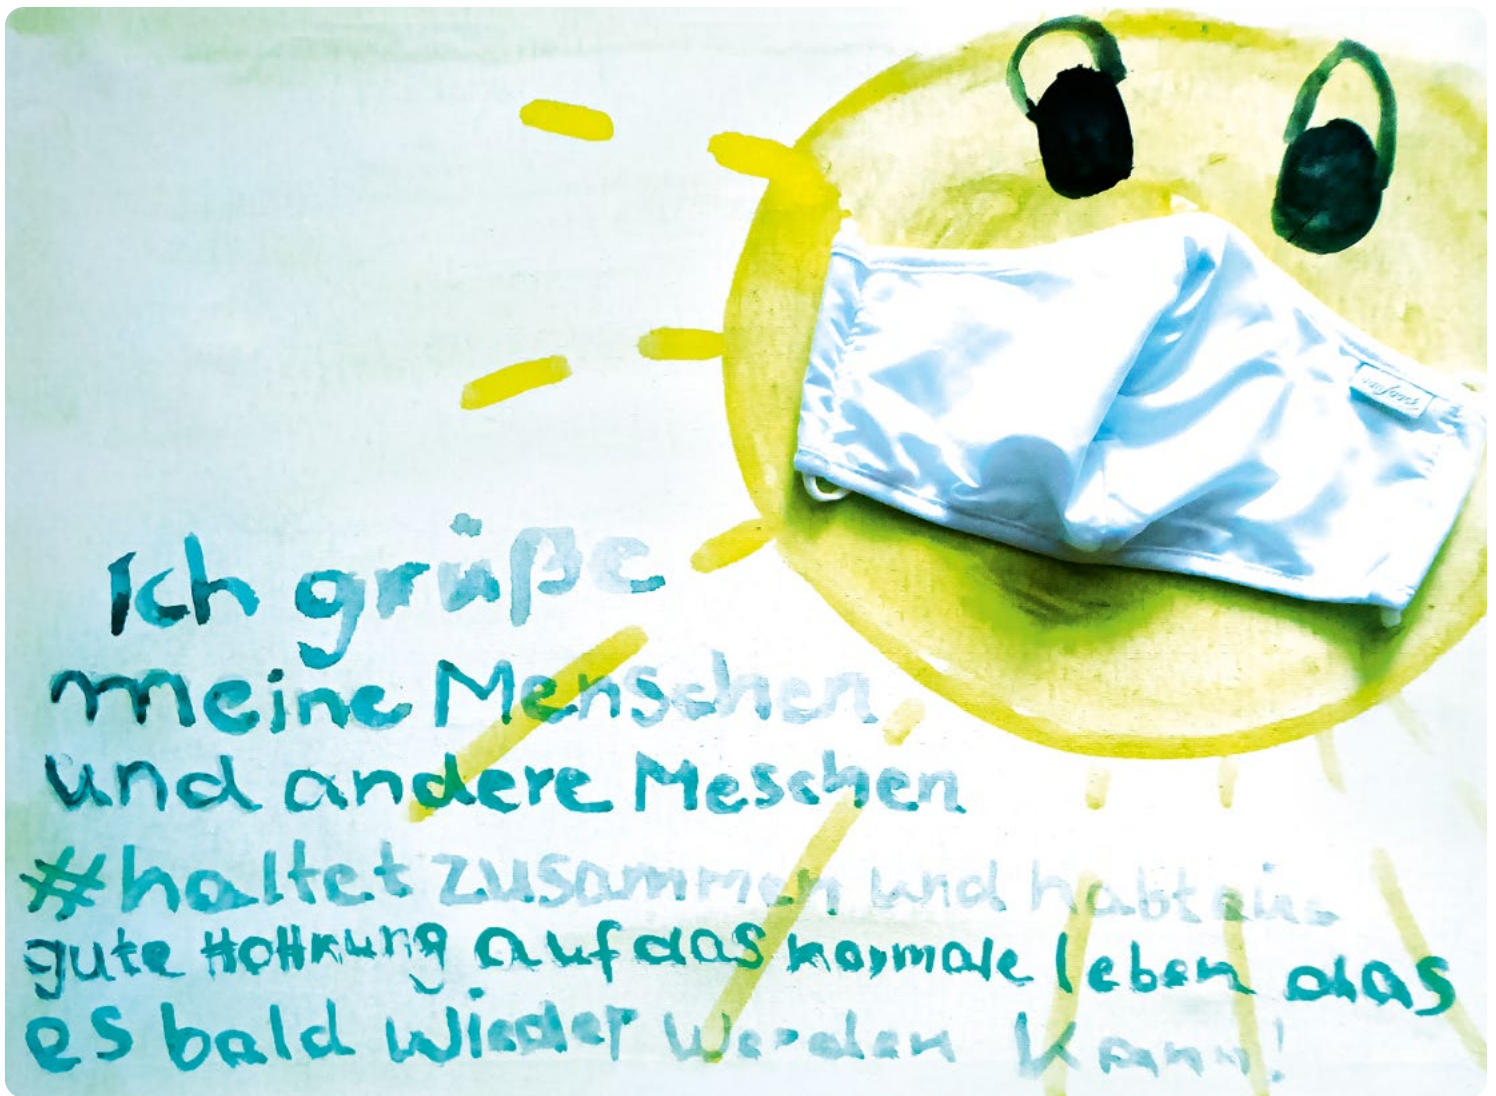 Ich grüße
meine Menschen
und andere Meschen
#haltet zusammen und habt eine
gute Hoffnung auf das normale leben das
es bald wieder werden kann!